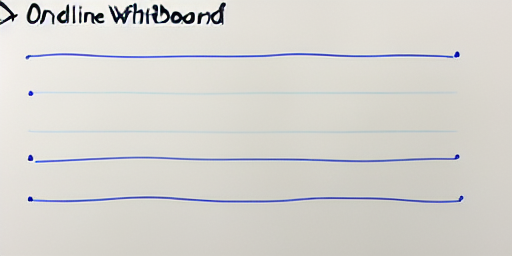 Ondline Whitboond